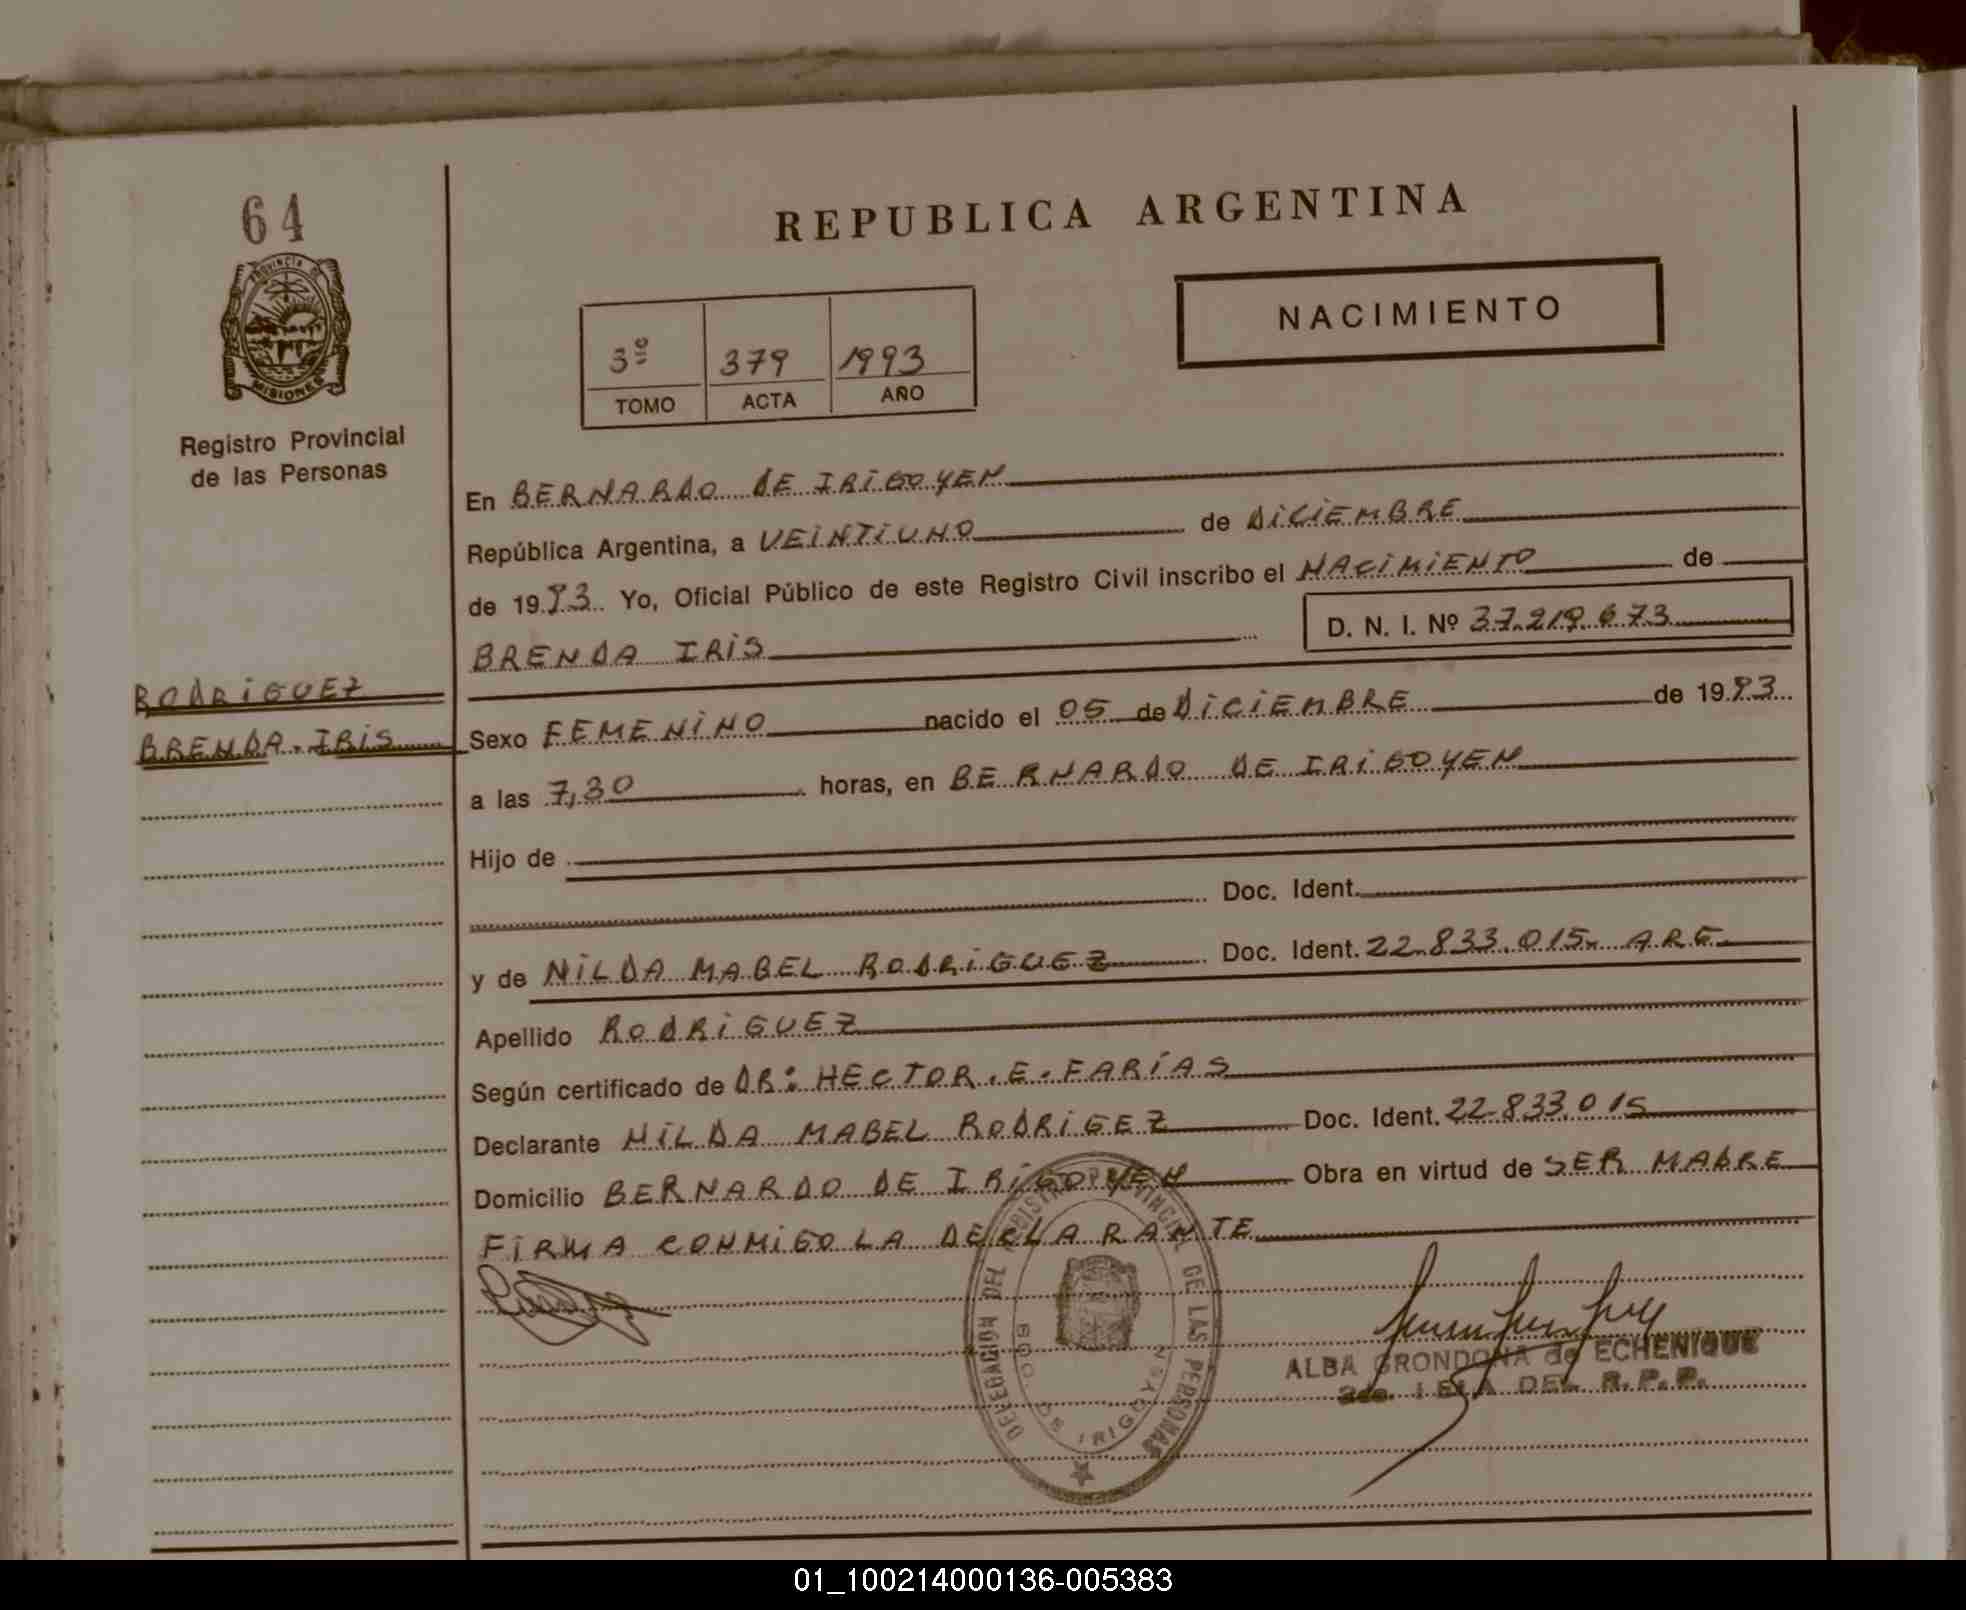 64
PROVINCIA DE
MISIONES
Registro Provincial
de las Personas
REPUBLICA ARGENTINA
NACIMIENTO
3º 379 1993
TOMO ACTA AÑO
En BERNARDO DE IRIGOYEN
República Argentina, a VEINTIUNO de DICIEMBRE
de 1993. Yo, Oficial Público de este Registro Civil inscribo el NACIMIENTO de
BRENDA IRIS D. N. I. Nº 37.219.673
RODRIGUEZ
BRENDA. IRIS
Sexo FEMENINO nacido el 05 de DICIEMBRE de 1993
a las 7,30 horas, en BERNARDO DE IRIGOYEN
Hijo de
Doc. Ident.
y de NILDA MABEL RODRIGUEZ Doc. Ident. 22.833.015. ARG
Apellido RODRIGUEZ
Según certificado de DR: HECTOR. E. FARÍAS
Declarante NILDA MABEL RODRIGEZ Doc. Ident. 22.833.015
Domicilio BERNARDO DE IRIGOYEN Obra en virtud de SER MADRE
FIRMA CONMIGO LA DECLARANTE
DELEGACION DEL REGISTRO PROVINCIAL DE LAS PERSONAS
BDO. DE IRIGOYEN
ALBA GRONDONA de ECHENIQUE
DEL R.P.P.
01_100214000136-005383